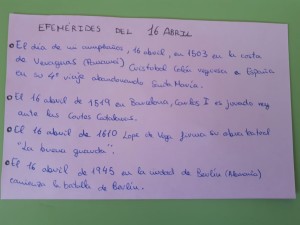 EFEMÉRIDES DEL 16 ABRIL
El día de mi cumpleaños, 16 abril, en 1503 en la costa
de Veraguas (Panamá) Cristobal Colón regresa a España
en su 4º viaje abandonando Santa María.
El 16 abril de 1519 en Barcelona, Carlos I es jurado rey
ante las Cortes Catalanas.
El 16 abril de 1610 Lope de Vega firma su obra teatral
"La buena guarda".
El 16 abril de 1945 en la ciudad de Berlín (Alemania)
comienza la batalla de Berlín.